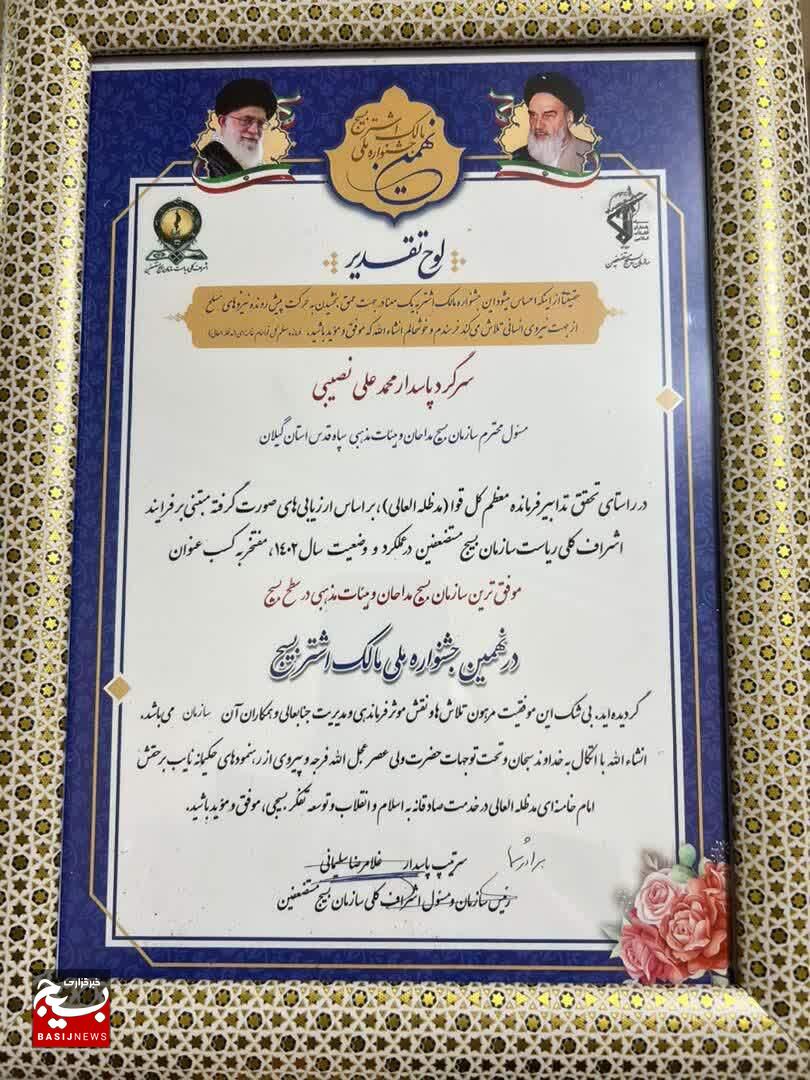 نهمین
جشنواره ملی
مالک اشتر بسیج
لوح تقدیر
حقیقتاً از اینکه احساس میشود این جشنواره مالک اشتر به یک معنا در جهت عمق بخشیدن به حرکت پیش رونده نیروهای مسلح
از جهت نیروی انسانی تلاش می‌کند خرسندم و خوشحالم انشاءالله که موفق و مؤید باشید.
سرگرد پاسدار محمد علی نصیبی
مسئول محترم سازمان بسیج مداحان و هیئات مذهبی سپاه قدس استان گیلان
در راستای تحقق تدابیر فرمانده معظم کل قوا (مدظله العالی)، بر اساس ارزیابی‌های صورت گرفته مبتنی بر فرایند
اشراف کلی ریاست سازمان بسیج مستضعفین در عملکرد و وضعیت سال ۱۴۰۲، مفتخر به کسب عنوان
موفق ترین سازمان بسیج مداحان و هیئات مذهبی در سطح بسیج
در نهمین جشنواره ملی مالک اشتر بسیج
گردیده‌اید. بی شک این موفقیت مرهون تلاش‌ها و نقش موثر فرماندهی و مدیریت جنابعالی و همکاران آن سازمان می‌باشد.
انشاءالله با اتکال به خداوند سبحان و تحت توجهات حضرت ولی عصر عجل الله فرجه و پیروی از رهنمودهای حکیمانه نایب برحقش
امام خامنه‌ای مدظله العالی در خدمت صادقانه به اسلام و انقلاب و توسعه تفکر بسیجی، موفق و مؤید باشید.
برادر شما
سرتیپ پاسدار غلامرضا سلیمانی
رئیس سازمان و مسئول اشراف کلی سازمان بسیج مستضعفین
خبرگزاری
بسیج
BASIJNEWS